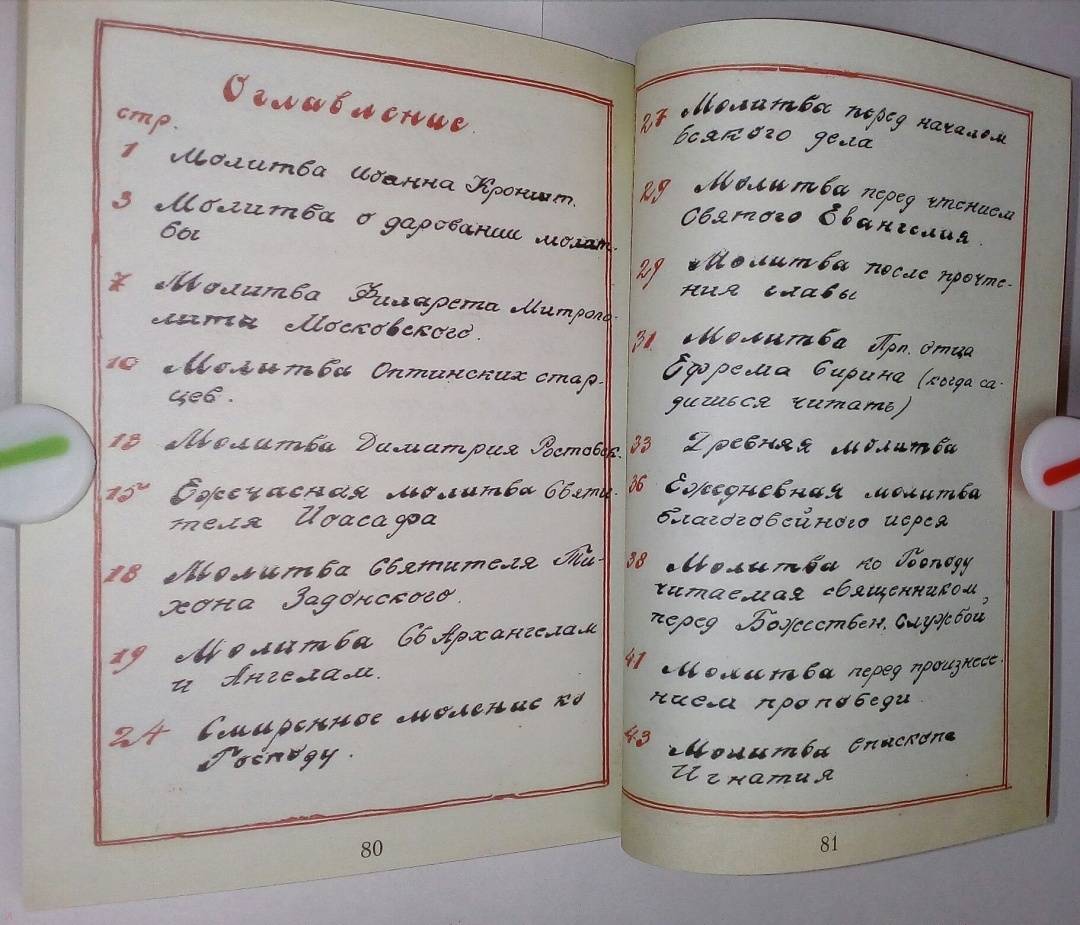 Оглавление.
стр.
1 Молитва Иоанна Кроншт.
3 Молитва о даровании молит-
вы
7 Молитва Филарета Митропо-
лита Московского.
10 Молитва Оптинских стар-
цев.
13 Молитва Димитрия Ростовск.
15 Ежечасная молитва Святи-
теля Иоасафа
18 Молитва Святителя Ти-
хона Задонского.
19 Молитва Св Архангелам
и Ангелам.
24 Смиренное моление ко
Господу.
80
27 Молитва перед началом
всякого дела
29 Молитва перед чтением
Святого Евангелия.
29 Молитва после прочте-
ния главы
31 Молитва Прп. отца
Ефрема Сирина (когда са-
дишься читать)
33 Древняя молитва
36 Ежедневная молитва
благоговейного иерея
38 Молитва ко Господу
читаемая священником,
перед Божествен. службой
41 Молитва перед произнесе-
нием проповеди
43 Молитва Епископа
Игнатия
81